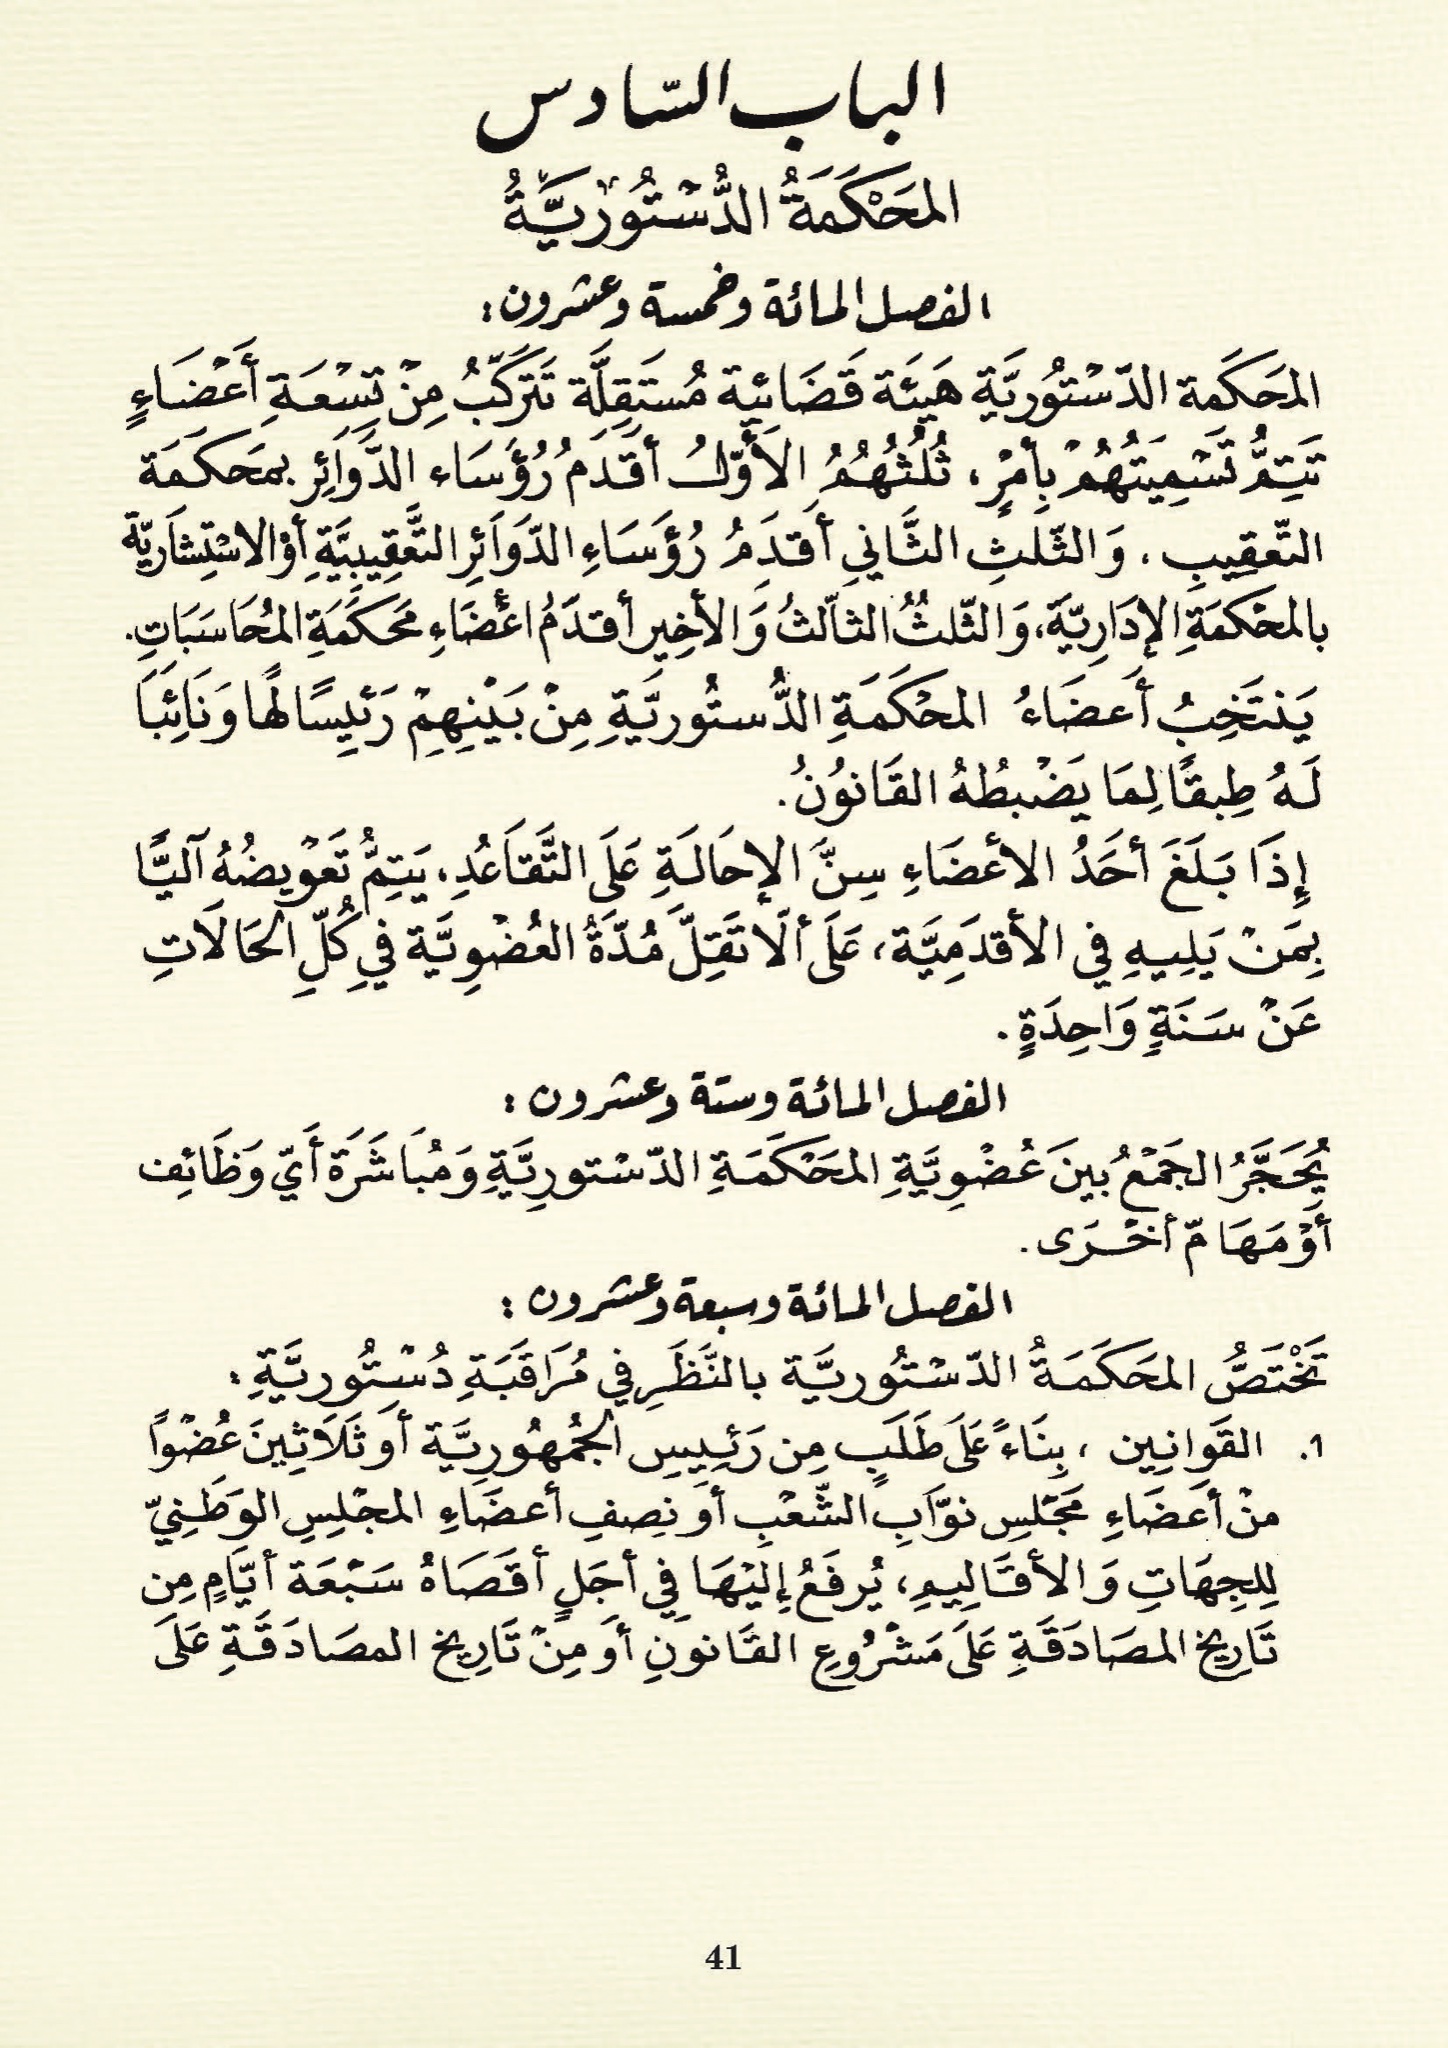 الباب السّادس
المَحَكَمَةُ الدُّسْتُورِيَّةُ
الفصل المائة وخمسة وعشرون:
المَحَكَمة الدّسْتُورِيَّة هَيئَة قَضَائيِة مُستَقِلَّة تَتَركَّبُ مِنْ تِسْعَةِ أَعْضَاءٍ
تَتِمُّ تَسْمِيَتُهُمْ بِأمْرٍ، ثُلُثُهُمُ الأَوّلُ أقدَمُ رُؤَسَاء الدَّوَائِر بمَحكَمَة
التّعقِيبِ. وَالثّلثِ الثَّانِي أَقدَمُ رُؤَسَاءِ الدّوَائِرِ التَّعقِيبِيَّةِ أوْ الاسْتِشَارِيّة
بالمَحْكَمَةِ الإدَارِيّة، وَالثّلثُ الثالّثُ وَالأخِير أقدَمُ اعْضَاءِ مَحكَمَةِ المُحَاسَبَاتِ.
يَنتَخِبُ أَعضَاءُ المحْكَمَةِ الدُّستُورِيَّةِ مِنْ بَيْنِهِمْ رَئِيسًا لهًا وَنَائِبًا
لَهُ طِبقًا لِمَا يَضْبطُهُ القَانوُنُ.
إِذَا بَلَغَ أحَدُ الأعضَاءِ سِنَّ الإحَالَةِ عَلَى التَّقَاعُدِ، يَتِمُّ تَعْوِيضُهُ آليًّا
بِمَنْ يَلِيهِ في الأقدَمِيَّة، عَلَى ألّا تَقِلَّ مُدّةُ العُضْوِيَّة في كُلّ الحَالَاتِ
عَنْ سَنَةٍ وَاحِدَةٍ.
الفصل المائة وستة وعشرون:
يُحَجَّرُ الجَمْعُ بينَ عُضْوِيَّةِ المحَكَمَةِ الدّسْتورِيَّةِ وَمُبَاشَرَة أَيّ وَظَائِف
أوْ مَهَامّ أخْرَى.
الفصل المائة وسبعة وعشرون:
تَخْتَصُّ المَحَكَمَةُ الدّسْتُورِيَّة بالنَّظَرِ في مُرَاقَبَةِ دُسْتُورِيَّةِ:
1. القَوانِين، بِنَاءً عَلَى طَلَبٍ مِن رَئِيسِ الجُمْهُورِيَّة أو ثَلَاثِينَ عُضْوًا
منْ أعَضَاءِ مَجْلسِ نوّابِ الشّعْبِ أو نِصفِ أعضَاءِ المجْلِسِ الوَطَنِيّ
لِلجِهَاتِ وَالأقَالِيمِ، يُرفَعُ إليْهَا فِي أجَلٍ أقصَاهُ سَبْعَة أيّامٍ مِن
تَارِيخ المصَادَقَةِ عَلَى مَشْرُوعِ القَانونِ أو مِنْ تَارِيخ المصَادَقَةِ عَلَى
41